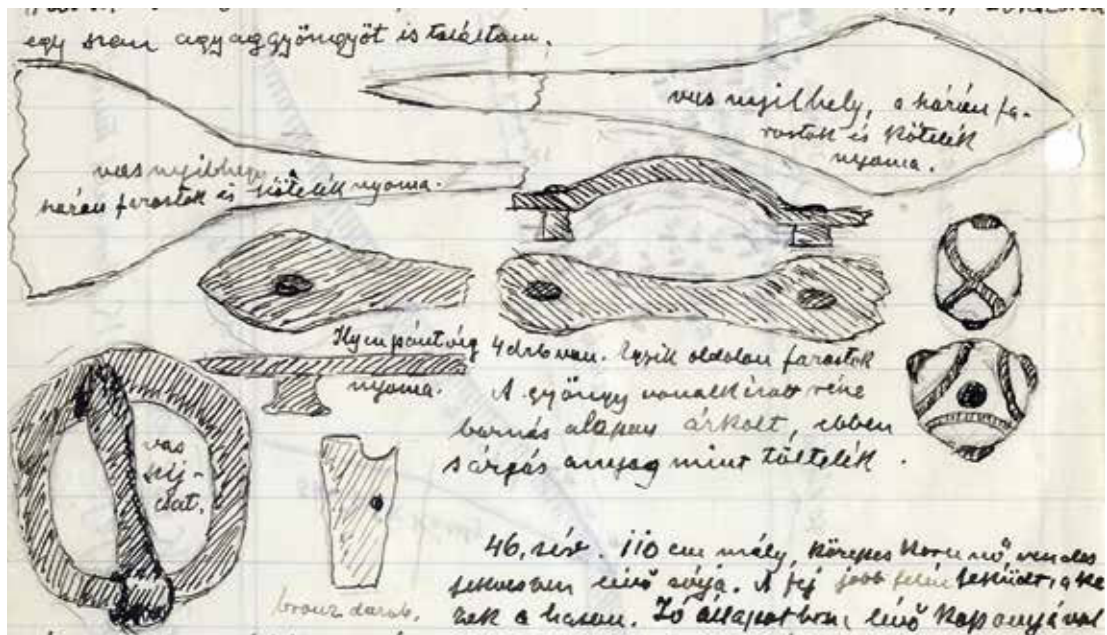 egy szem agyaggyöngyöt is találtam.
vas nyilhegy, a szárán fa-
rostok és kötelék
nyoma.
vas nyilhegy
szárán farostok és kötelék nyoma.
Ilyen pántvég 4 drb van. Egyik oldalon farostok
nyoma.
A gyöngy vonalkázott része
barnás alapon árkolt, ebben
sárgás anyag mint töltelék.
vas
szíj-
csat.
bronz darab.
46. sír. 110 cm mély, közepes korú nő rendes
fekvésben lévő váza. A fej jobb felén feküdt, a ke
zek a hason. Jó állapotban lévő koponyával